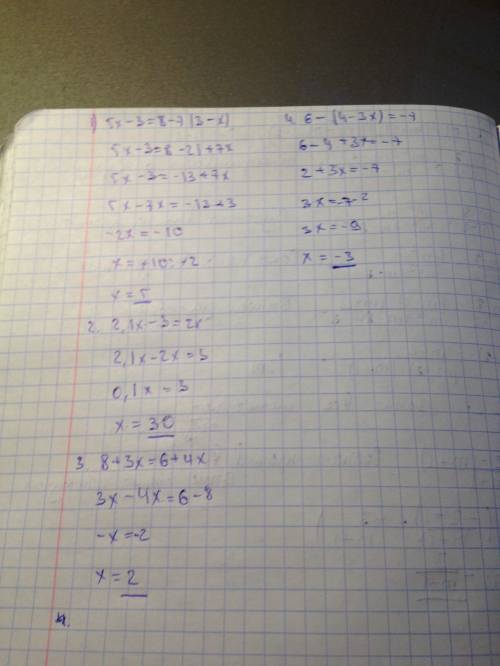 1) 5x-3=8-7(3-x)
5x-3=8-21+7x
5x-3=-13+7x
5x-7x=-13+3
-2x=-10
x=+10:+2
x=5
2. 2,1x-3=2x
2,1x-2x=3
0,1x=3
x=30
3. 8+3x=6+4x
3x-4x=6-8
-x=-2
x=2
4.
4. 6-(4-3x)=-7
6-4+3x=-7
2+3x=-7
3x=-7-2
3x=-9
x=-3